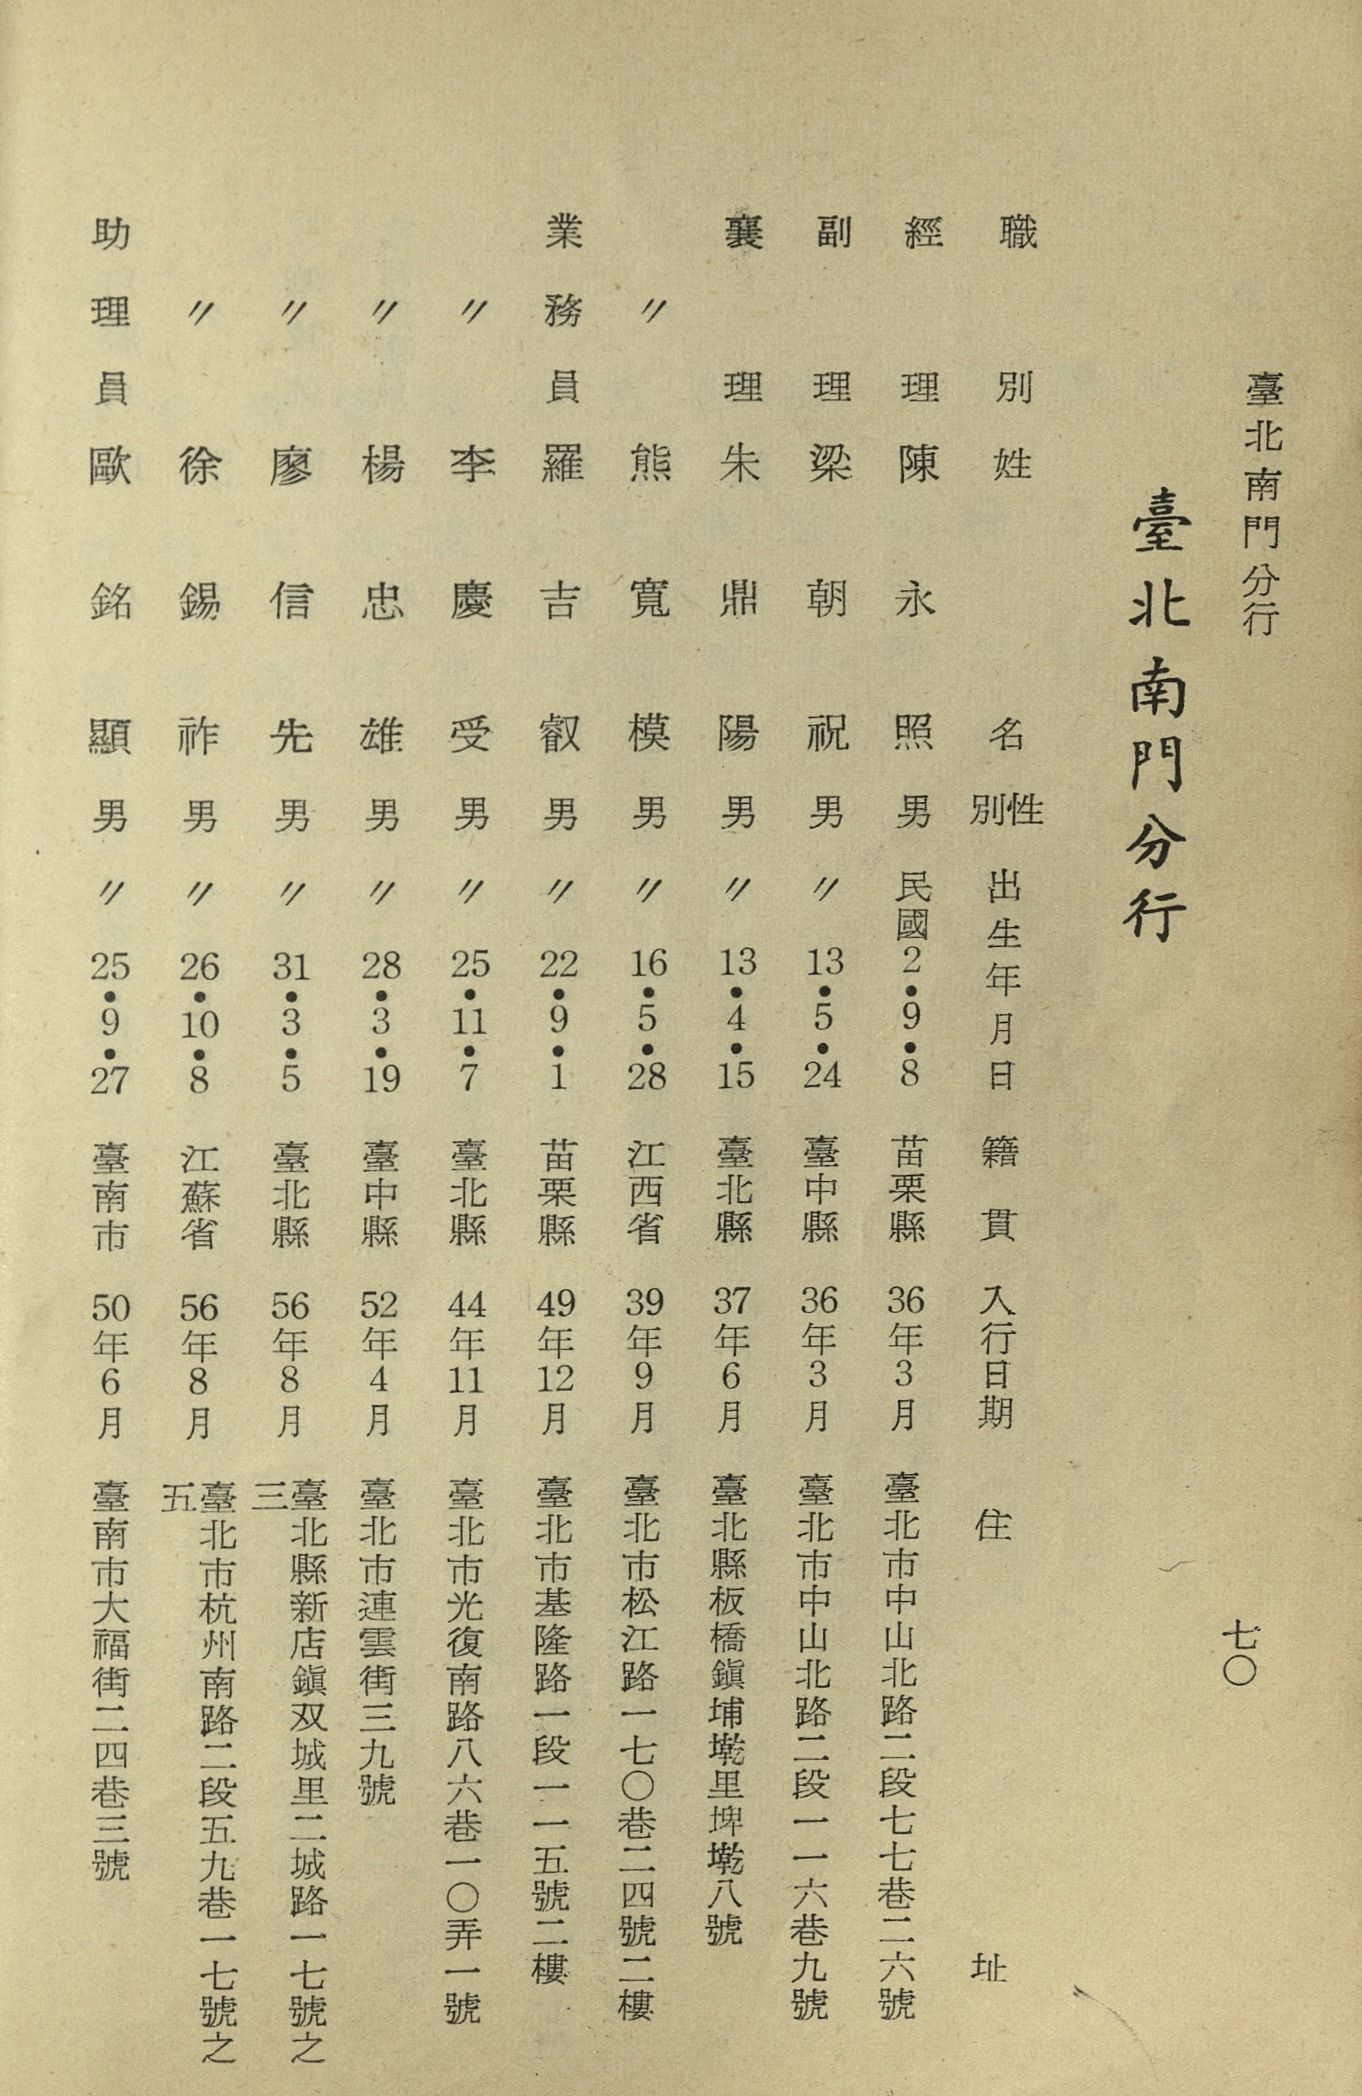 臺北南門分行
七〇
臺北南門分行
職別 姓名 性別 出生年月日 籍貫 入行日期 住址
經理 陳永照 男 民國2•9•8 苗栗縣 36年3月 臺北市中山北路二段七七巷二六號
副理 梁朝祝 男 〃13•5•24 臺中縣 36年3月 臺北市中山北路二段一一六巷九號
襄理 朱鼎陽 男 〃13•4•15 臺北縣 37年6月 臺北縣板橋鎭埔墘里埤墘八號
〃 熊寬模 男 〃16•5•28 江西省 39年9月 臺北市松江路一七〇巷二四號二樓
業務員 羅吉叡 男 〃22•9•1 苗栗縣 49年12月 臺北市基隆路一段一一五號二樓
〃 李慶受 男 〃25•11•7 臺北縣 44年11月 臺北市光復南路八六巷一〇弄一號
〃 楊忠雄 男 〃28•3•19 臺中縣 52年4月 臺北市連雲街三九號
〃 廖信先 男 〃31•3•5 臺北縣 56年8月 臺北縣新店鎭双城里二城路一七號之
三
〃 徐錫祚 男 〃26•10•8 江蘇省 56年8月 臺北市杭州南路二段五九巷一七號之
五
助理員 歐銘顯 男 〃25•9•27 臺南市 50年6月 臺南市大福街二四巷三號